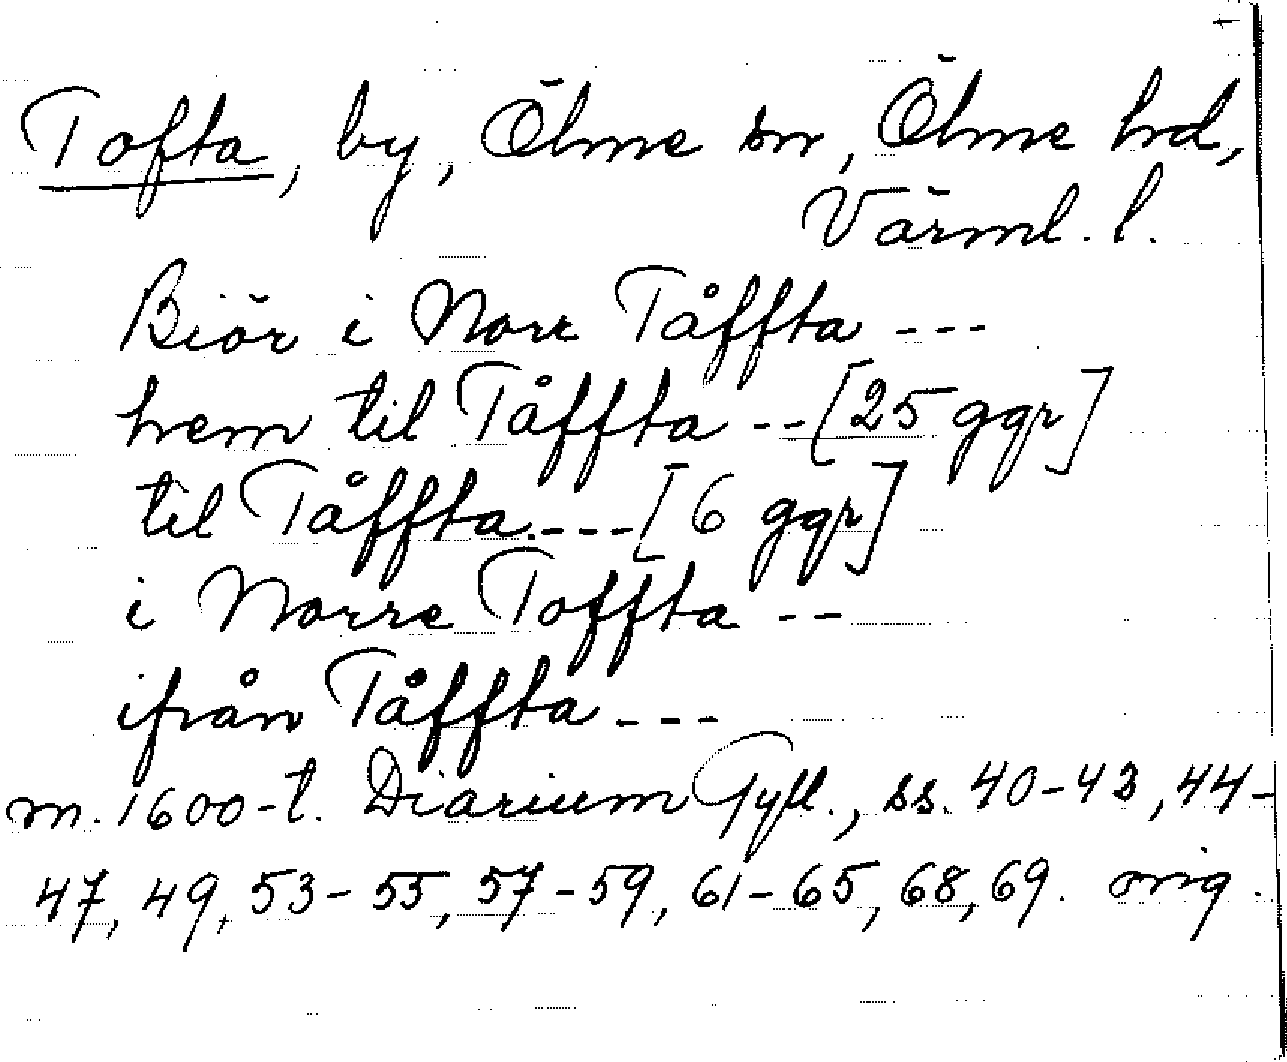 Tofta, by, Ölme sn, Ölme hd,
Värml. l.
Biör i Norr Tåffta ---
hem til Tåffta --[25 ggr]
til Tåffta.---[6 ggr]
i Norre Toffta --
ifrån Tåffta ---
m. 1600-t. Diarium Gyll., ss. 40-43, 44-
47, 49, 53-55, 57-59, 61-65, 68, 69. orig.